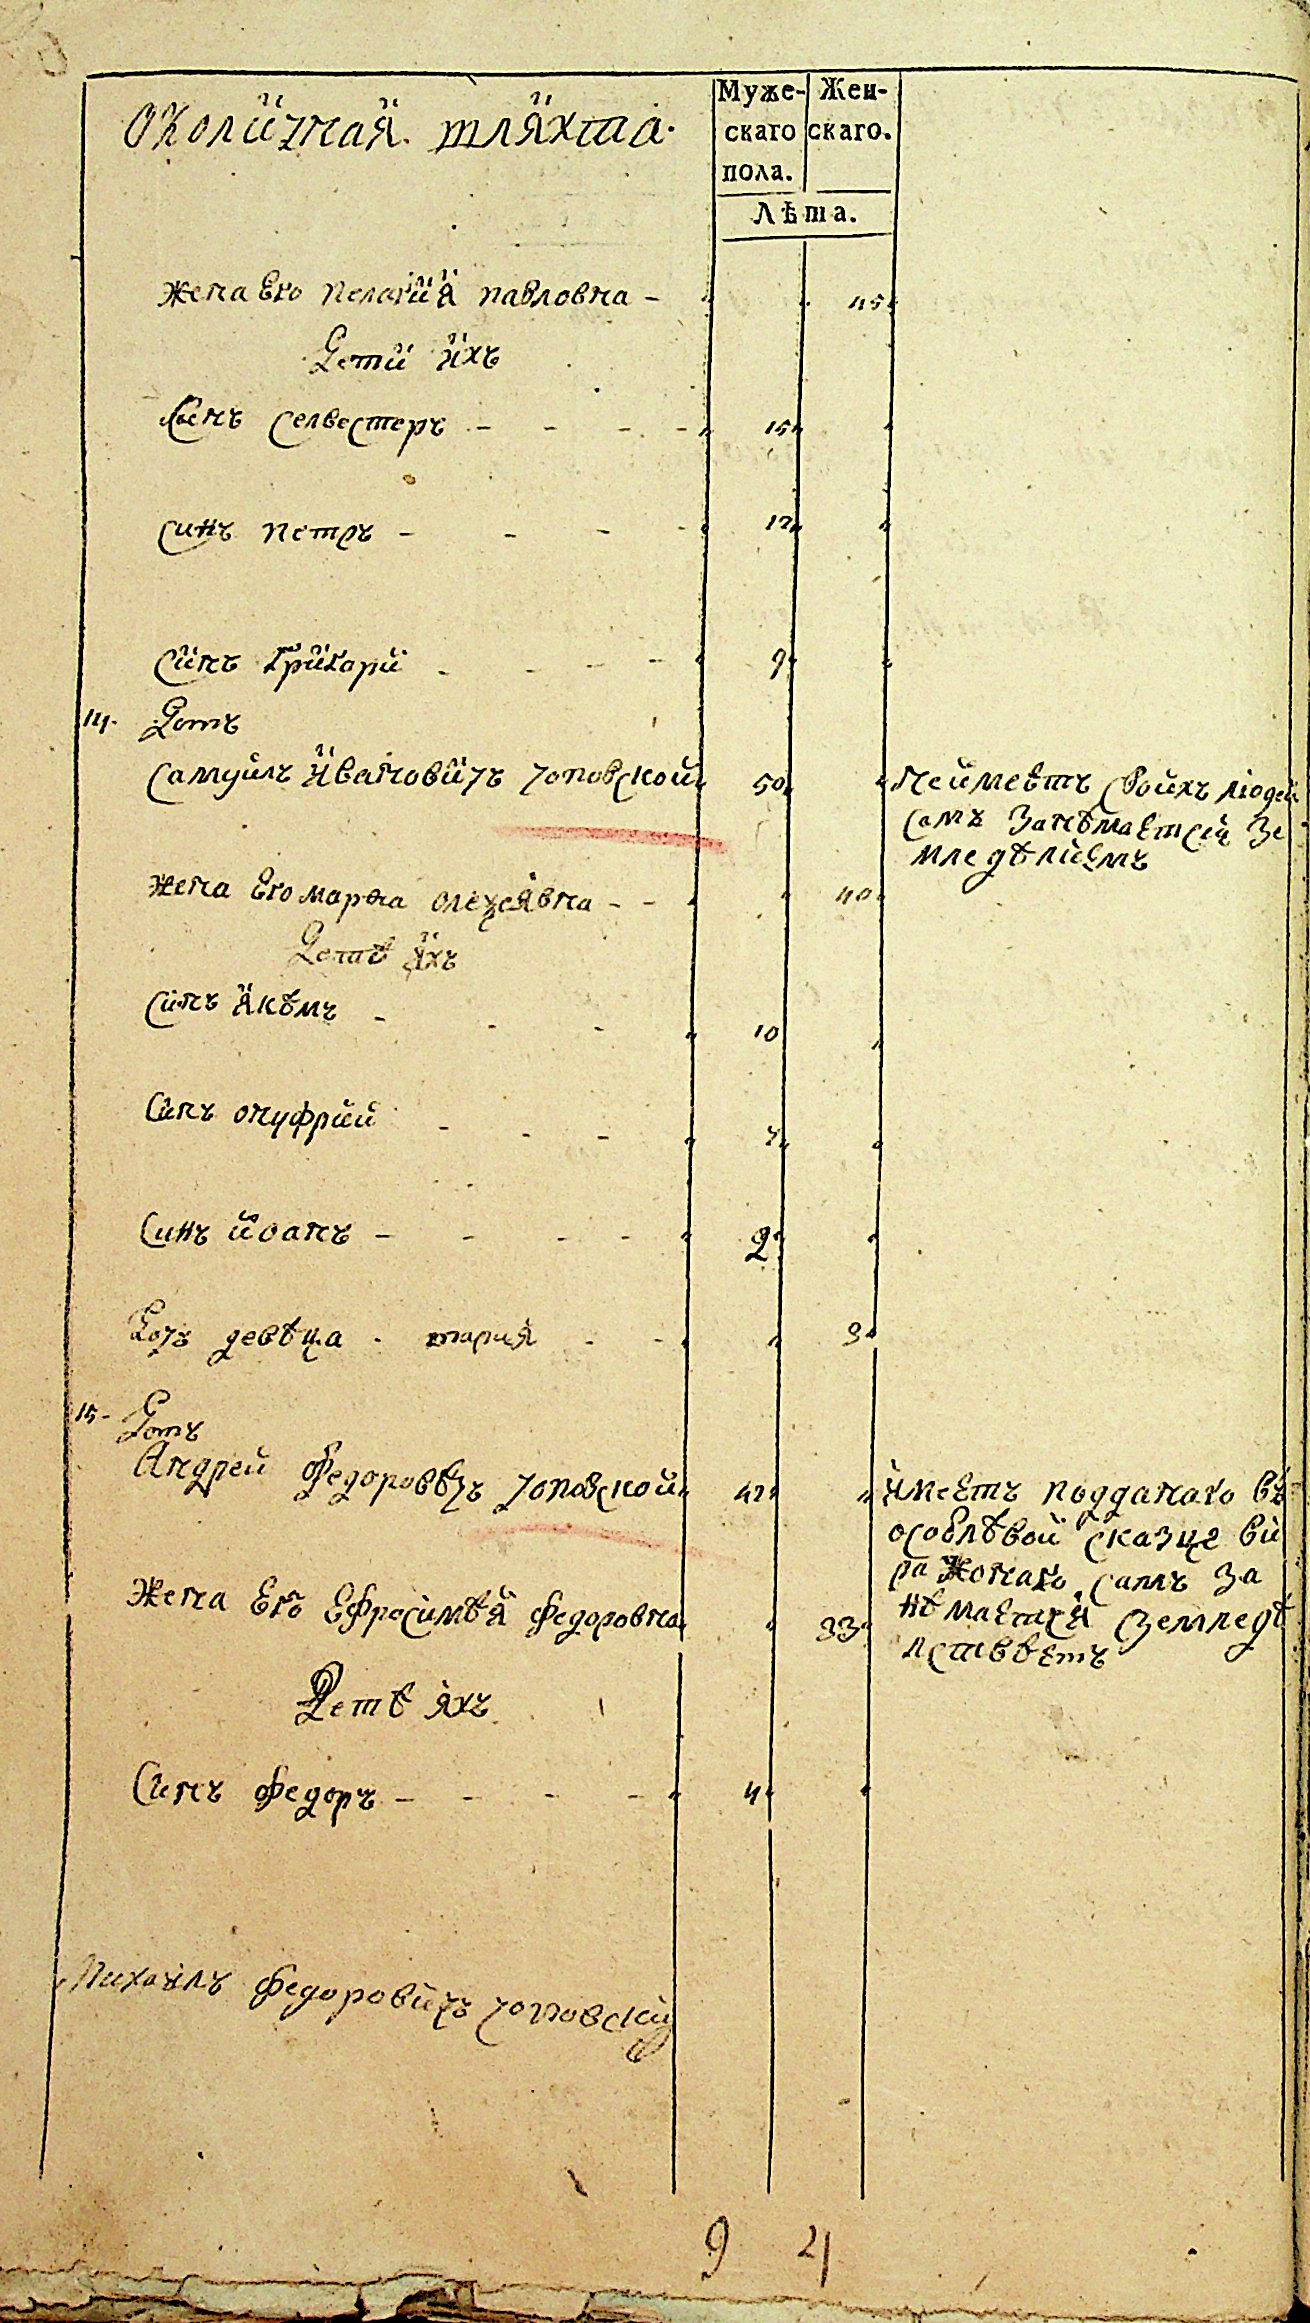 Околїчная шляхта.
Муже- Жен-
скаго скаго.
пола.
Лѣта.
жена Его пелагїя павловна - 45
Дети ихъ
Сынъ Селвестеръ - - - - 15
Синъ петръ - - - - 12
Синъ Григори - - - - 9
14. Домъ
Самуилъ Ивановичъ чоповской 50 неимеетъ своихъ людей
самъ занѣмается зе
мледѣлиемъ
жена Его марѳа олексѣявна - - 40
Детѣ ихъ
Синъ якѣмъ - - - 10
Синъ онуфрий - - -
Синъ иоанъ - - - - 2
Дочъ девѣца - мария - - 3
15- Домъ
Андрей Федоровѣчъ чоповской 42 имеетъ подданаго въ
особлѣвой сказце ви
ражонаго. самъ за
нѣмается земледѣ
лствветъ
Жена Его Ефросимѣя федоровна 33
Детѣ ихъ
Синъ федоръ - - - - 4
Михаилъ федоровичъ чоповский
9 4